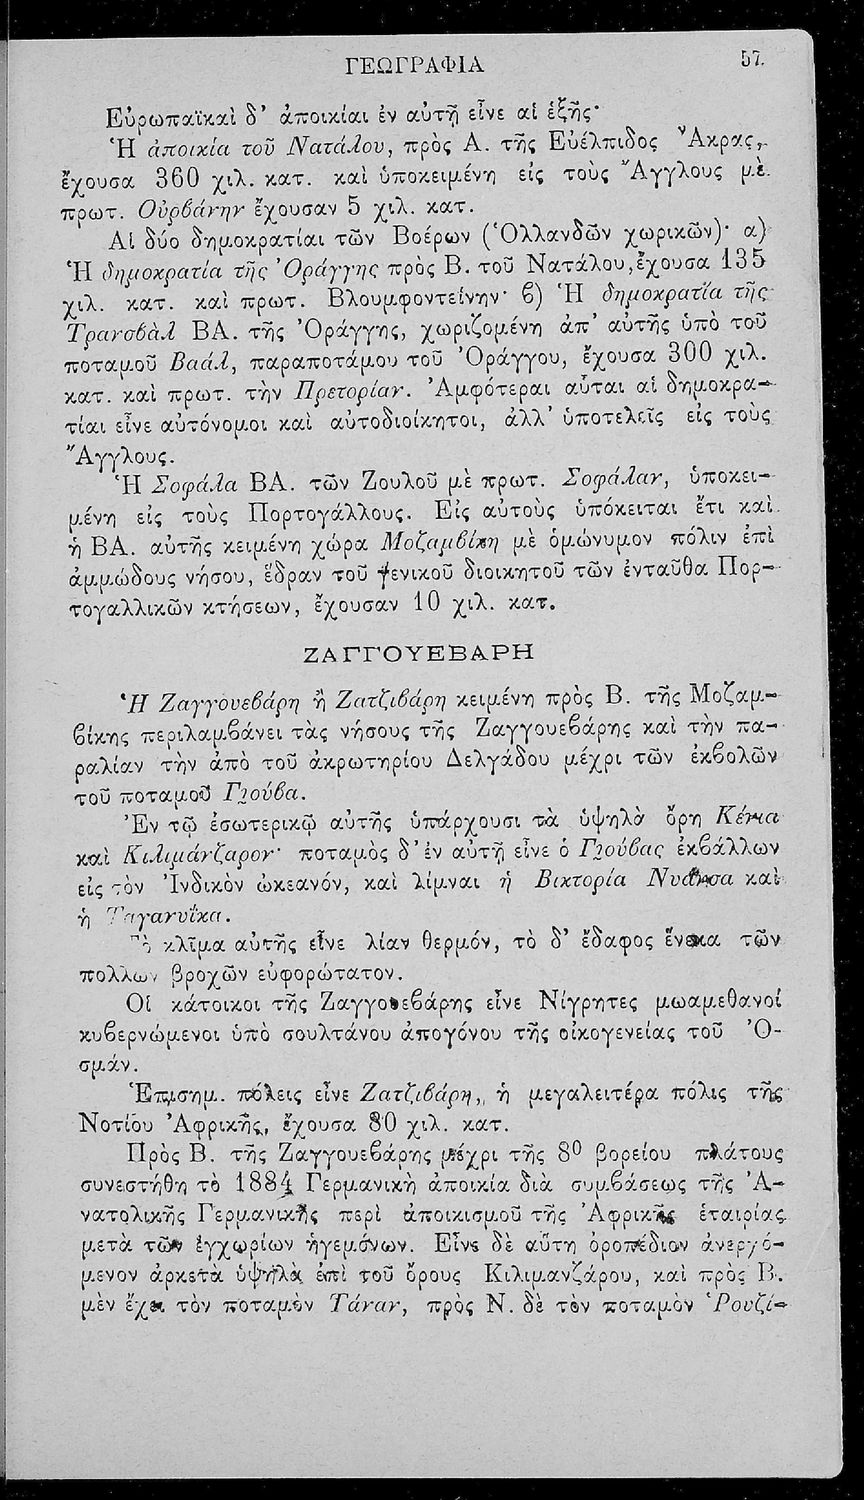 ΓΕΩΓΡΑΦΙΑ 57
Εὐρωπαϊκαὶ δ’ ἀποικίαι ἐν αὐτῇ εἶνε αἱ ἑξῆς·
Ἡ ἀποικία τοῦ Νατάλου, πρὸς Α. τῆς Εὐέλπιδος Ἄκρας,
ἔχουσα 360 χιλ. κατ. καὶ ὑποκειμένη εἰς τοὺς Ἄγγλους μὲ
πρωτ. Οὐρβάνην ἔχουσαν 5 χιλ. κατ.
Αἱ δύο δημοκρατίαι τῶν Βοέρων (Ὁλλανδῶν χωρικῶν)· α)
Ἡ δημοκρατία τῆς Ὀράγγης πρὸς Β. τοῦ Νατάλου, ἔχουσα 135
χιλ. κατ. καὶ πρωτ. Βλουμφοντεΐνην· ϐ) Ἡ δημοκρατία τῆς
Τρανσβὰλ ΒΑ. τῆς Ὀράγγης, χωριζομένη ἀπ’ αὐτῆς ὑπὸ τοῦ
ποταμοῦ Βαάλ, παραποτάμου τοῦ Ὀράγγου, ἔχουσα 300 χιλ.
κατ. καὶ πρωτ. τὴν Πρετορίαν. Ἀμφότεραι αὗται αἱ δημοκρα-
τίαι εἶνε αὐτόνομοι καὶ αὐτοδιοίκητοι, ἀλλ’ ὑποτελεῖς εἰς τοὺς
Ἄγγλους.
Ἡ Σοφάλα ΒΑ. τῶν Ζουλοῦ μὲ πρωτ. Σοφάλαν, ὑποκει-
μένη εἰς τοὺς Πορτογάλλους. Εἰς αὐτοὺς ὑπόκειται ἔτι καὶ
ἡ ΒΑ. αὐτῆς κειμένη χώρα Μοζαμϐίκη μὲ ὁμώνυμον πόλιν ἐπὶ
ἀμμώδους νήσου, ἕδραν τοῦ γενικοῦ διοικητοῦ τῶν ἐνταῦθα Πορ-
τογαλλικῶν κτήσεων, ἔχουσαν 10 χιλ. κατ.
ΖΑΓΓΟΥΕΒΑΡΗ
Ἡ Ζαγγουεϐάρη ἢ Ζατζιϐάρη κειμένη πρὸς Β. τῆς Μοζαμ-
ϐίκης περιλαμϐάνει τὰς νήσους τῆς Ζαγγουεϐάρης καὶ τὴν πα-
ραλίαν τὴν ἀπὸ τοῦ ἀκρωτηρίου Δελγάδου μέχρι τῶν ἐκϐολῶν
τοῦ ποταμοῦ Γιούϐα.
Ἐν τῷ ἐσωτερικῷ αὐτῆς ὑπάρχουσι τὰ ὑψηλὰ ὄρη Κένια
καὶ Κιλιμάνζαρον· ποταμὸς δ’ ἐν αὐτῇ εἶνε ὁ Γιούϐας ἐκϐάλλων
εἰς τὸν Ἰνδικὸν ὠκεανόν, καὶ λίμναι ἡ Βικτορία Νυάνσα καὶ
ἡ Ταγανυΐκα.
Τὸ κλῖμα αὐτῆς εἶνε λίαν θερμόν, τὸ δ’ ἔδαφος ἕνεκα τῶν
πολλων βροχῶν εὐφορώτατον.
Οἱ κάτοικοι τῆς Ζαγγουεϐάρης εἶνε Νίγρητες μωαμεθανοί
κυϐερνώμενοι ὑπὸ σουλτάνου ἀπογόνου τῆς οἰκογενείας τοῦ Ὀ-
σμάν.
Ἐπισημ. πόλεις εἶνε Ζατζιϐάρη, ἡ μεγαλειτέρα πόλις τῆς
Νοτίου Ἀφρικῆς, ἔχουσα 80 χιλ. κατ.
Πρὸς Β. τῆς Ζαγγουεϐάρης μέχρι τῆς 8⁰ βορείου πλάτους
συνεστήθη τὸ 1884 Γερμανικὴ ἀποικία διὰ συμϐάσεως τῆς Ἀ-
νατολικῆς Γερμανικῆς περὶ ἀποικισμοῦ τῆς Ἀφρικῆς ἑταιρίας
μετὰ τῶν ἐγχωρίων ἡγεμόνων. Εἶνε δὲ αὕτη ὀροπέδιον ἀνερχό-
μενον ἀρκετὰ ὑψηλὰ ἐπὶ τοῦ ὄρους Κιλιμανζάρου, καὶ πρὸς Β.
μὲν ἔχει τὸν ποταμὸν Τάναν, πρὸς Ν. δὲ τὸν ποταμὸν Ῥουζί-